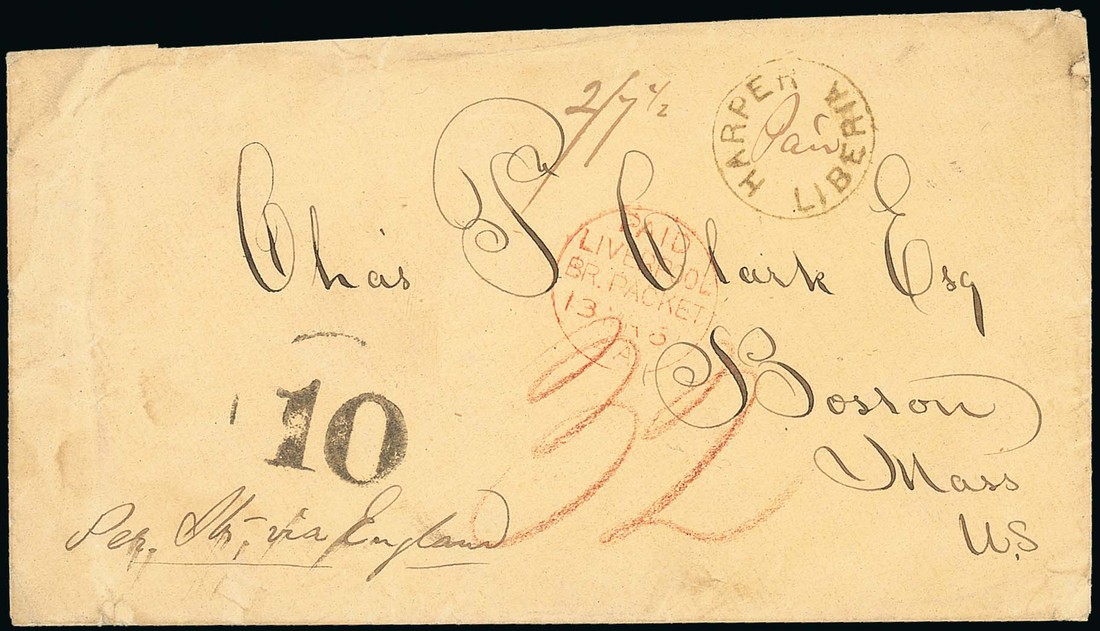 2/7 1/2
HARPER LIBERIA
Paid
Chas T. Clark Esq
PAID
LIVERPOOL
BR. PACKET
13
32
Boston
Mass
U.S
10
Per. Str, via England